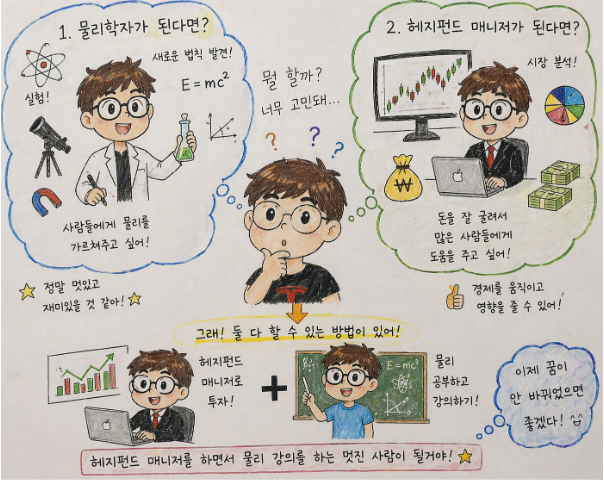 1. 물리학자가 된다면?
새로운 법칙 발견!
E=mc²
실험!
사람들에게 물리를
가르쳐주고 싶어!
정말 멋있고
재미있을 것 같아!
뭘 할까?
너무 고민돼...
? ? ?
2. 헤지펀드 매니저가 된다면?
시장 분석!
₩
돈을 잘 굴려서
많은 사람들에게
도움을 주고 싶어!
경제를 움직이고
영향을 줄 수 있어!
그래! 둘 다 할 수 있는 방법이 있어!
헤지펀드
매니저로
투자!
+
E=mc²
물리
공부하고
강의하기!
이제 꿈이
안 바뀌었으면
좋겠다! ^^
헤지펀드 매니저를 하면서 물리 강의를 하는 멋진 사람이 될거야!